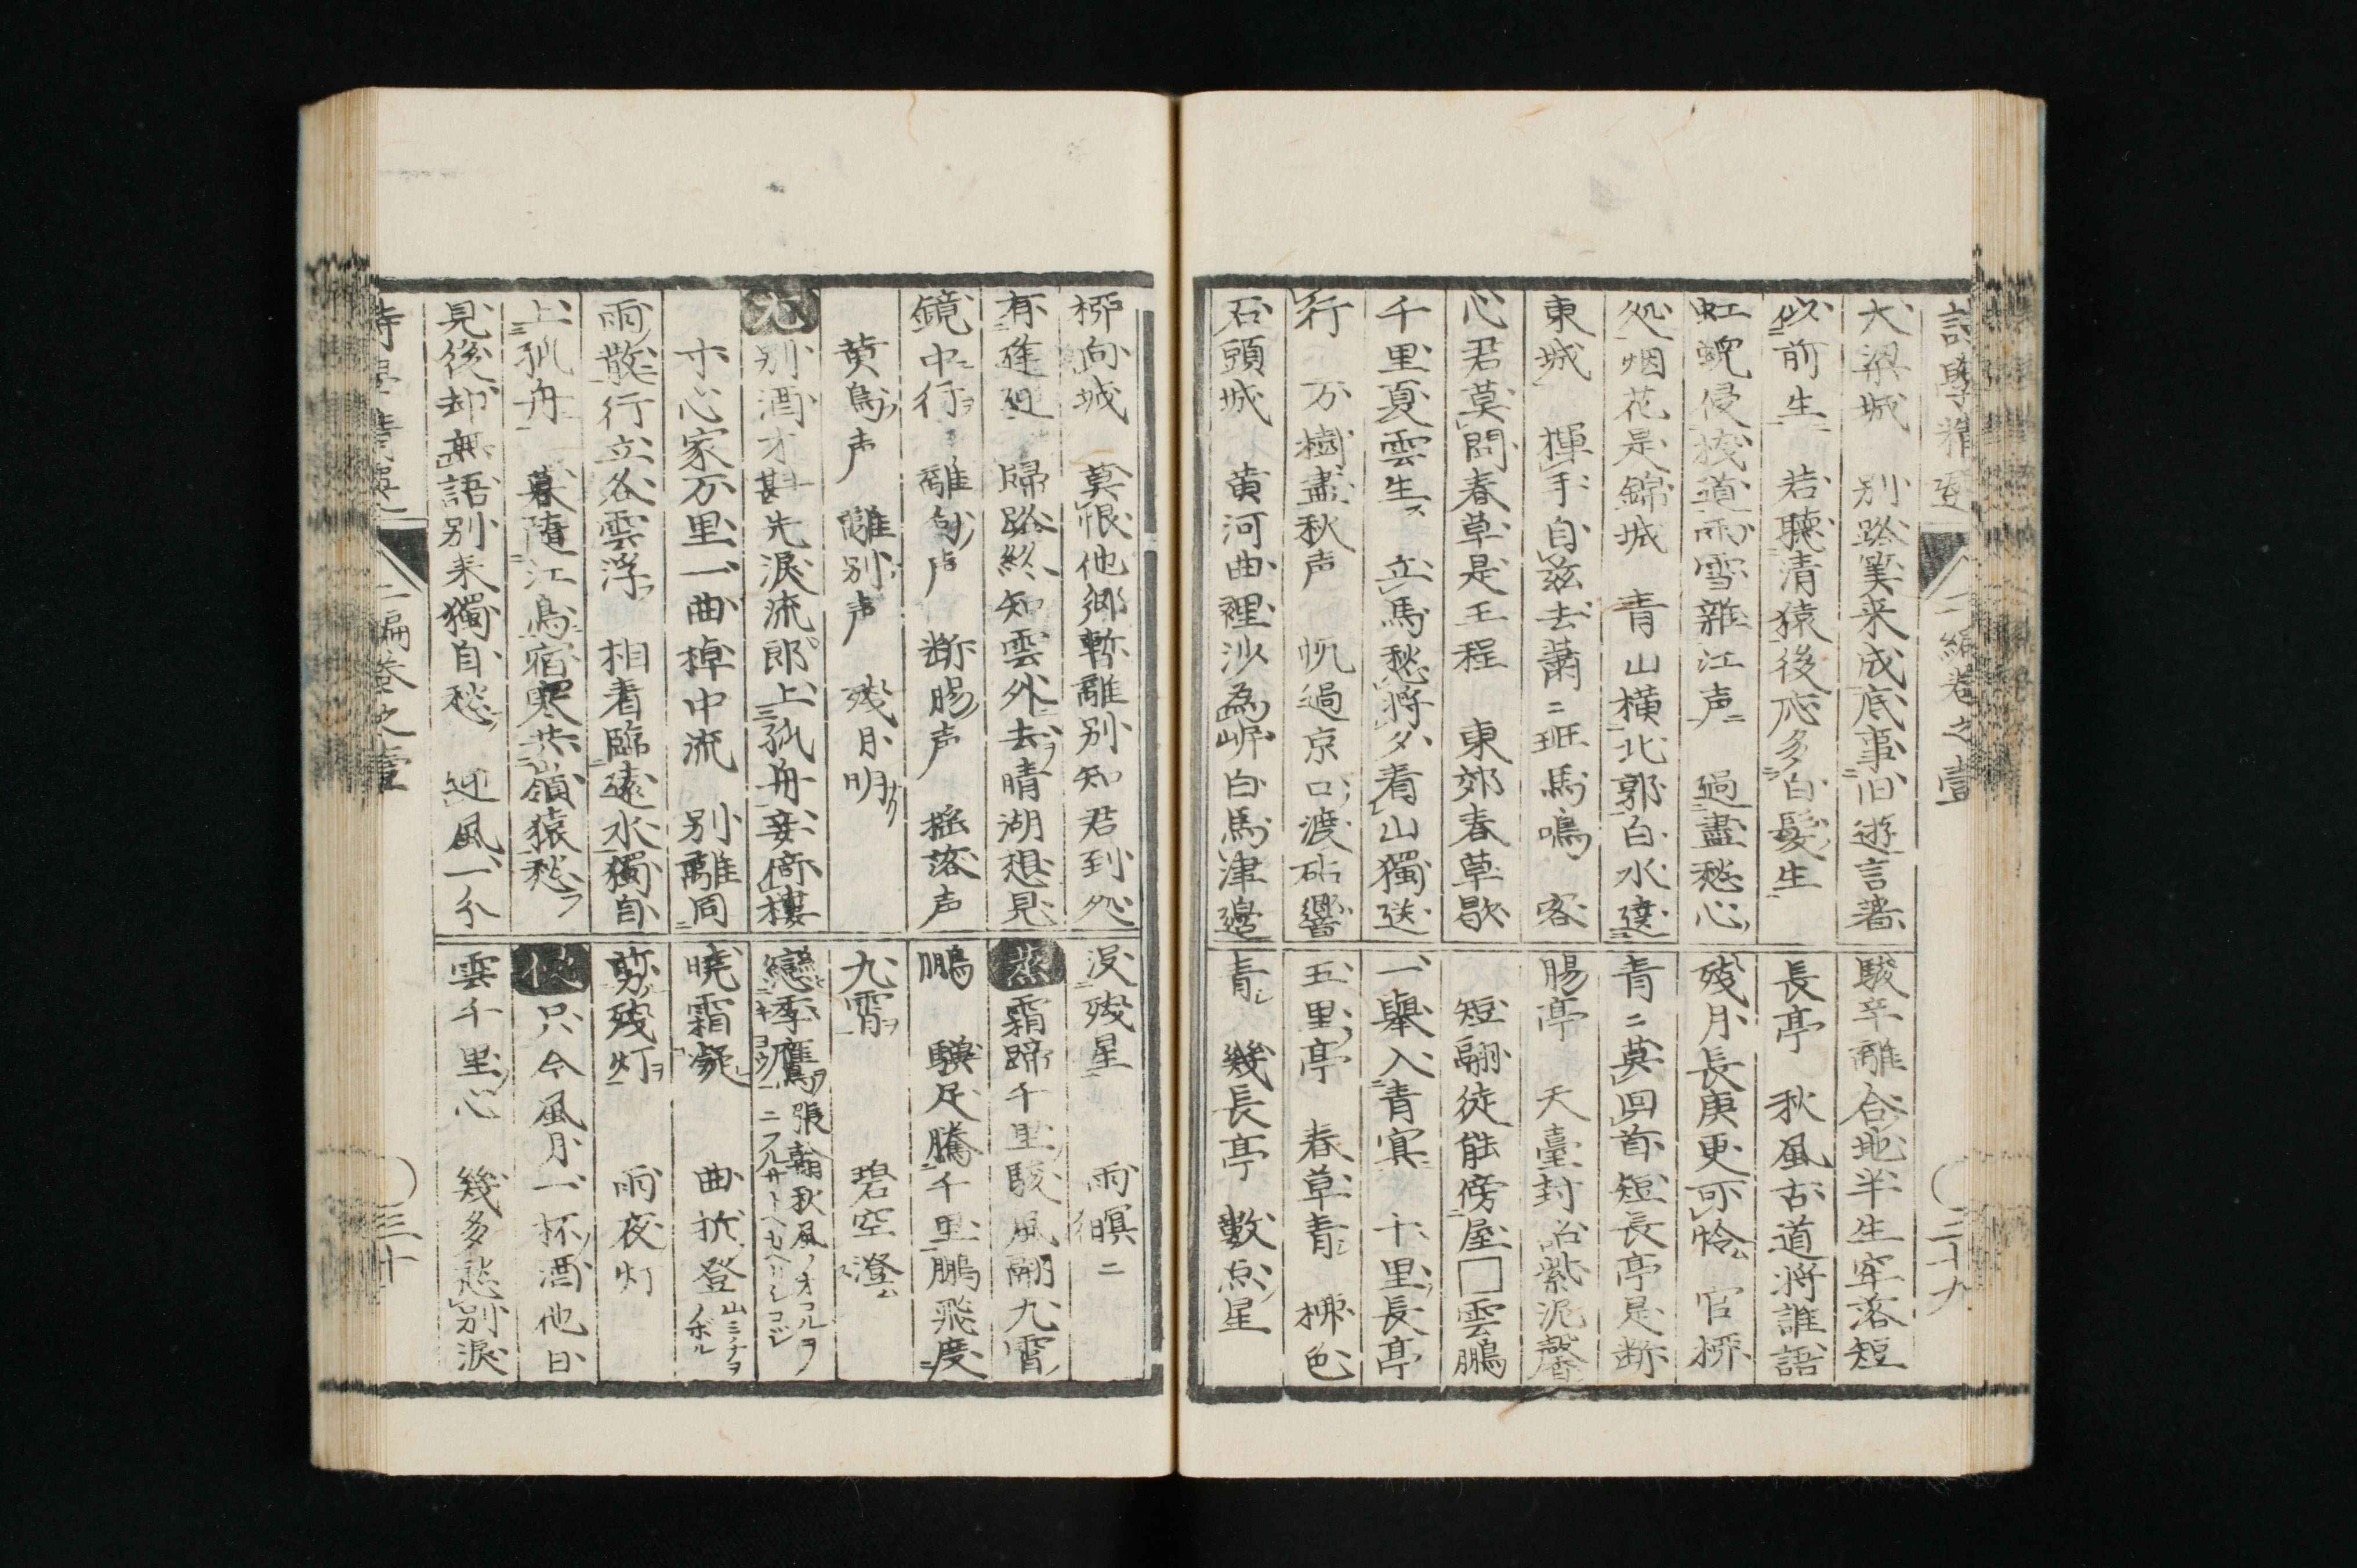 詩學精選 二編卷之壹 二十九
大梁城 別路笑来成底事旧遊言著
以前生 若聴清猿後応多白髪生
虹蜺侵桟道雨雪雜江声 過盡愁心
処烟花是錦城 青山横北郭白水遶
東城 揮手自茲去蕭ニ班馬鳴 客
心君莫問春草是王程 東郊春草歇
千里夏雲生 立馬愁将夕看山獨送
行 万樹盡秋声 帆過京口渡砧響
石頭城 黄河曲裡沙為岸白馬津邊
駿卒離合地半生牢落短
長亭 秋風古道将誰語
残月長庚更可怜 官桥
青ニ莫回首短長亭是断
腸亭 天臺封詔紫泥馨
短翮徒能傍屋□雲鵬
一舉入青冥 十里長亭
五里亭 春草青 栁色
青 幾長亭 數点星
栁向城 莫恨他郷暫離別知君到処
有逢迎 歸路終知雲外去晴湖想見
鏡中行 離匈声 断腸声 揺落声
黄鳥声 離別声 残月明
尤 別酒才斟先淚流郎上孤舟妾倚樓
寸心家万里一曲棹中流 別離同
雨散行立各雲浮 相看臨遠水獨自
上孤舟 暮随江鳥宿寒共嶺猿愁
見後却無語別来獨自愁 迎風一分
没残星 雨瞑ニ
蒸 霜蹄千里駿風翮九霄
鵬 驥足騰千里鵬飛度
九霄 碧空澄
戀季鷹 張翰秋風ノオコルヲ
暁霜凝 曲折登
剪残灯 雨夜灯
侵 只今風月一杯酒他日
雲千里心 幾多愁別淚
二編卷之壹 三十